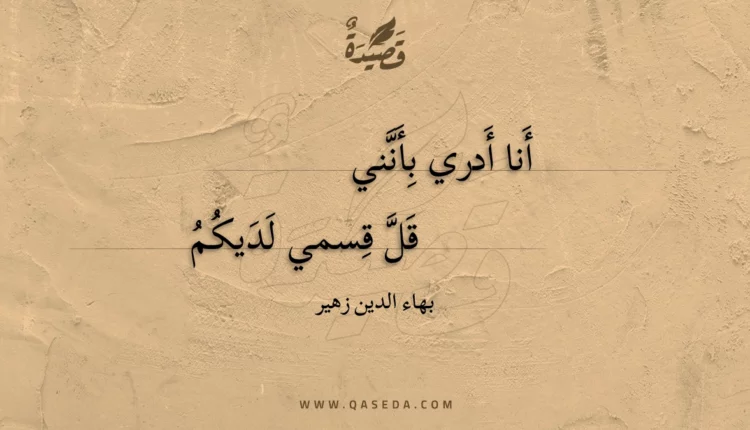 قَصِيدَةٌ
أَنا أَدري بِأَنَّني
قَلَّ قِسمي لَدَيكُمُ
بهاء الدين زهير
WWW.QASEDA.COM